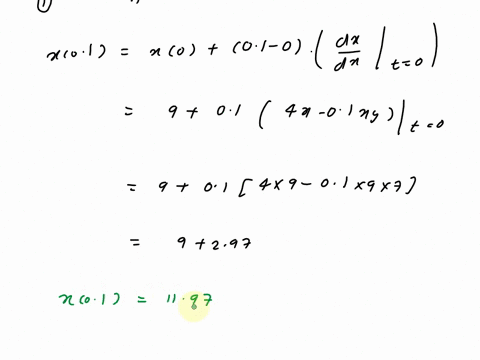 ①
x(0.1) = x(0) + (0.1-0) · ( dx/dx |t=0 )
= 9 + 0.1 ( 4x - 0.1xy ) |t=0
= 9 + 0.1 [ 4×9 - 0.1×9×7 ]
= 9 + 2.97
x(0.1) = 11.97